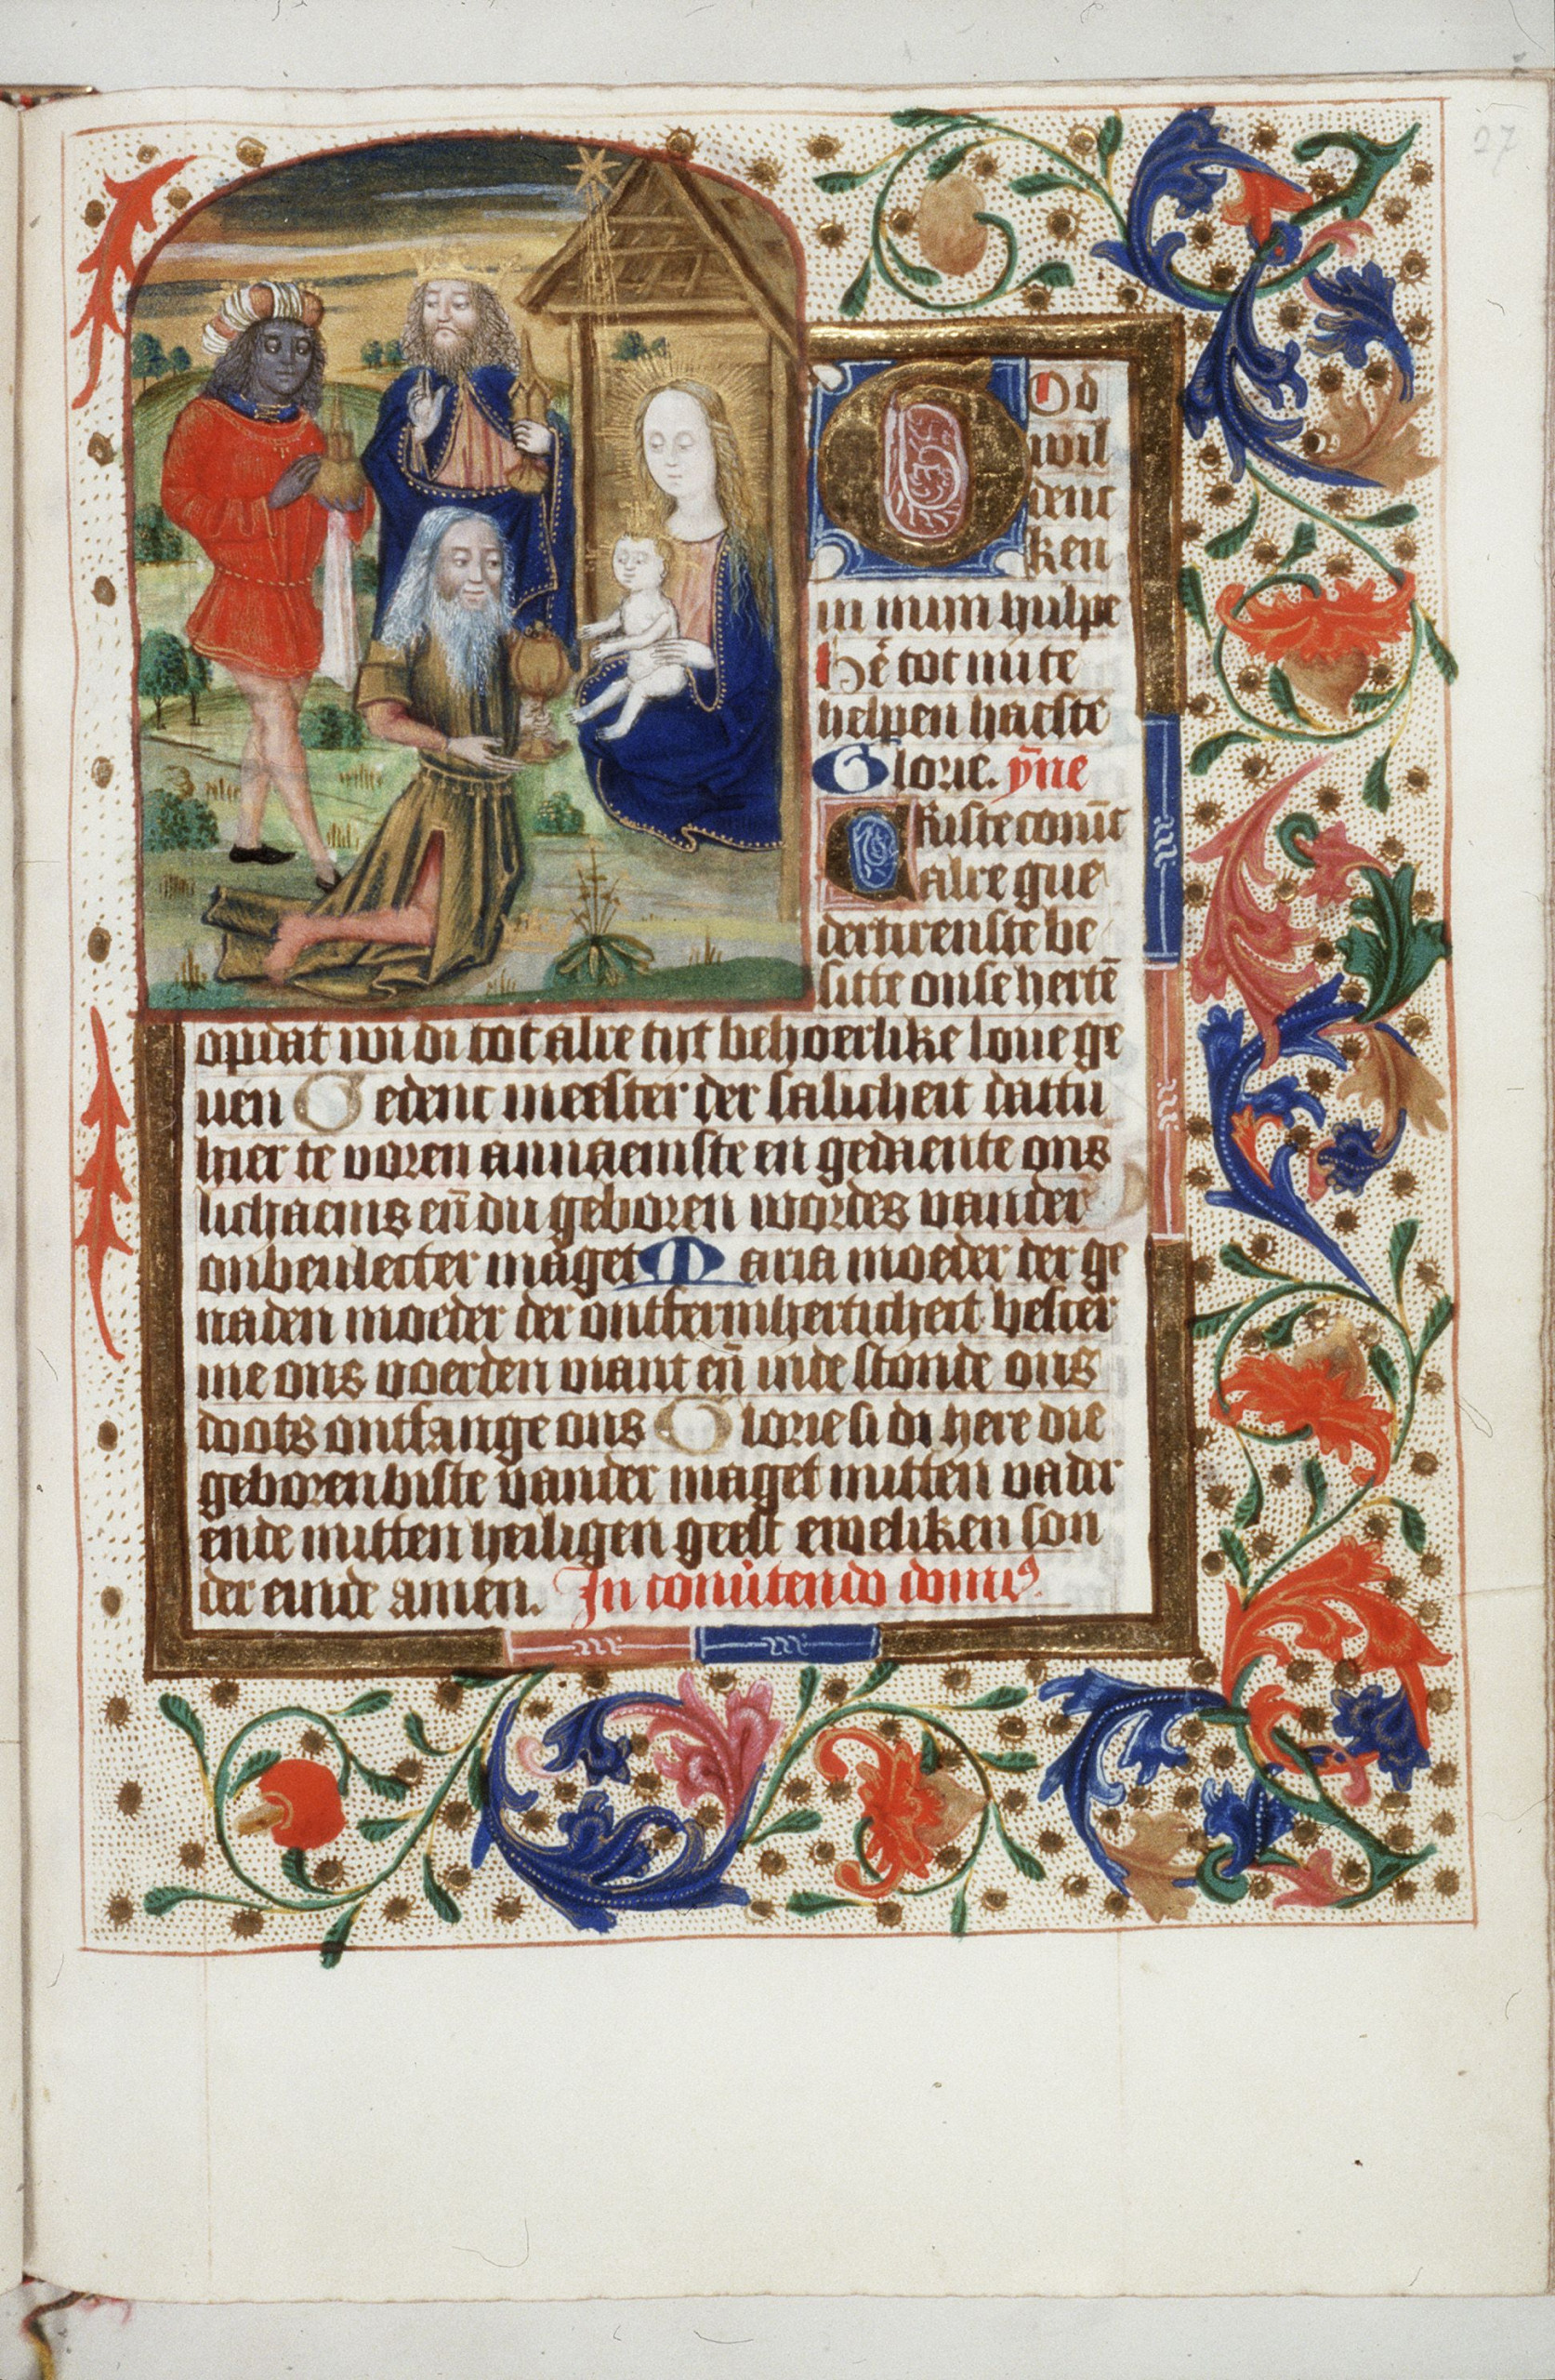 27
God
wil
denc
ken
in mijn hulpe
hē tot mi te
helpen haeste
Glorie. ȳne
Criste comīt
alre gue
dertirenste be
sitte onse hertē
opdat wi di tot alre tijt behoerlike loue ge
uen Gedenc meester der salicheit dattu
hier te voren annaemste en gedaente ons
lichaems eñ du geboren wordes vander
onbeulecter maget Maria moeder der ge
naden moeder der ontfermherticheit bescer
me ons voerden viant eñ inde stonde ons
doots ontfange ons Glorie si di here die
geboren biste vander maget mitten vadr
ende mitten heiligen geest eweliken son
der einde amen. In conūtendo domi⁹